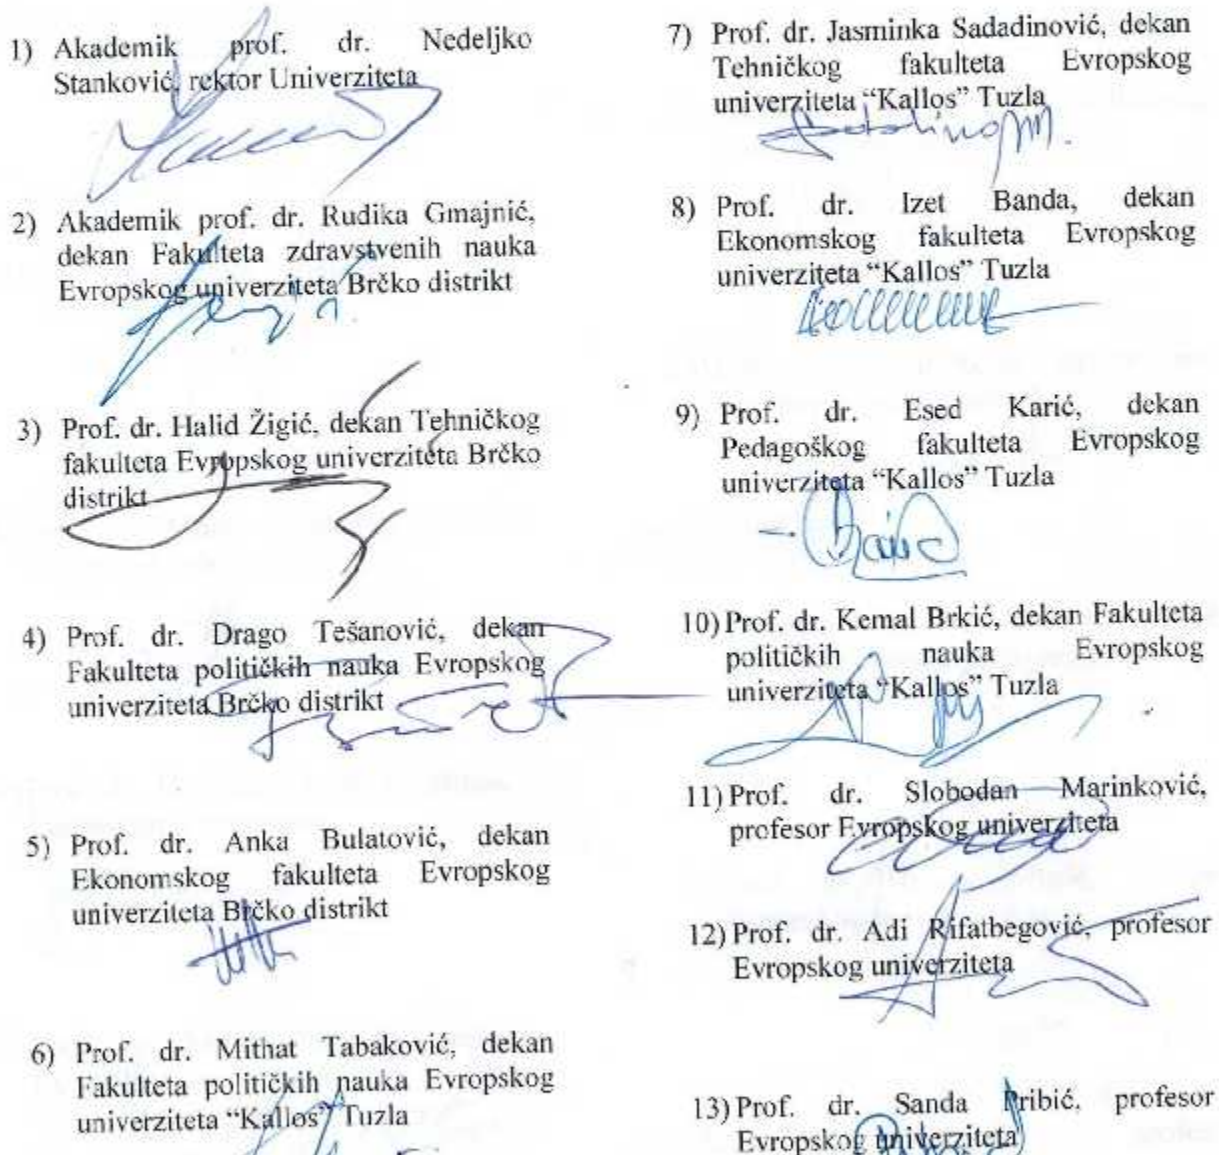 1) Akademik prof. dr. Nedeljko
Stanković, rektor Univerziteta
2) Akademik prof. dr. Rudika Gmajnić,
dekan Fakulteta zdravstvenih nauka
Evropskog univerziteta Brčko distrikt
3) Prof. dr. Halid Žigić, dekan Tehničkog
fakulteta Evropskog univerziteta Brčko
distrikt
4) Prof. dr. Drago Tešanović, dekan
Fakulteta političkih nauka Evropskog
univerziteta Brčko distrikt
5) Prof. dr. Anka Bulatović, dekan
Ekonomskog fakulteta Evropskog
univerziteta Brčko distrikt
6) Prof. dr. Mithat Tabaković, dekan
Fakulteta političkih nauka Evropskog
univerziteta “Kallos” Tuzla
7) Prof. dr. Jasminka Sadadinović, dekan
Tehničkog fakulteta Evropskog
univerziteta “Kallos” Tuzla
8) Prof. dr. Izet Banda, dekan
Ekonomskog fakulteta Evropskog
univerziteta “Kallos” Tuzla
9) Prof. dr. Esed Karić, dekan
Pedagoškog fakulteta Evropskog
univerziteta “Kallos” Tuzla
10) Prof. dr. Kemal Brkić, dekan Fakulteta
političkih nauka Evropskog
univerziteta “Kallos” Tuzla
11) Prof. dr. Slobodan Marinković,
profesor Evropskog univerziteta
12) Prof. dr. Adi Rifatbegović, profesor
Evropskog univerziteta
13) Prof. dr. Sanda Pribić, profesor
Evropskog univerziteta